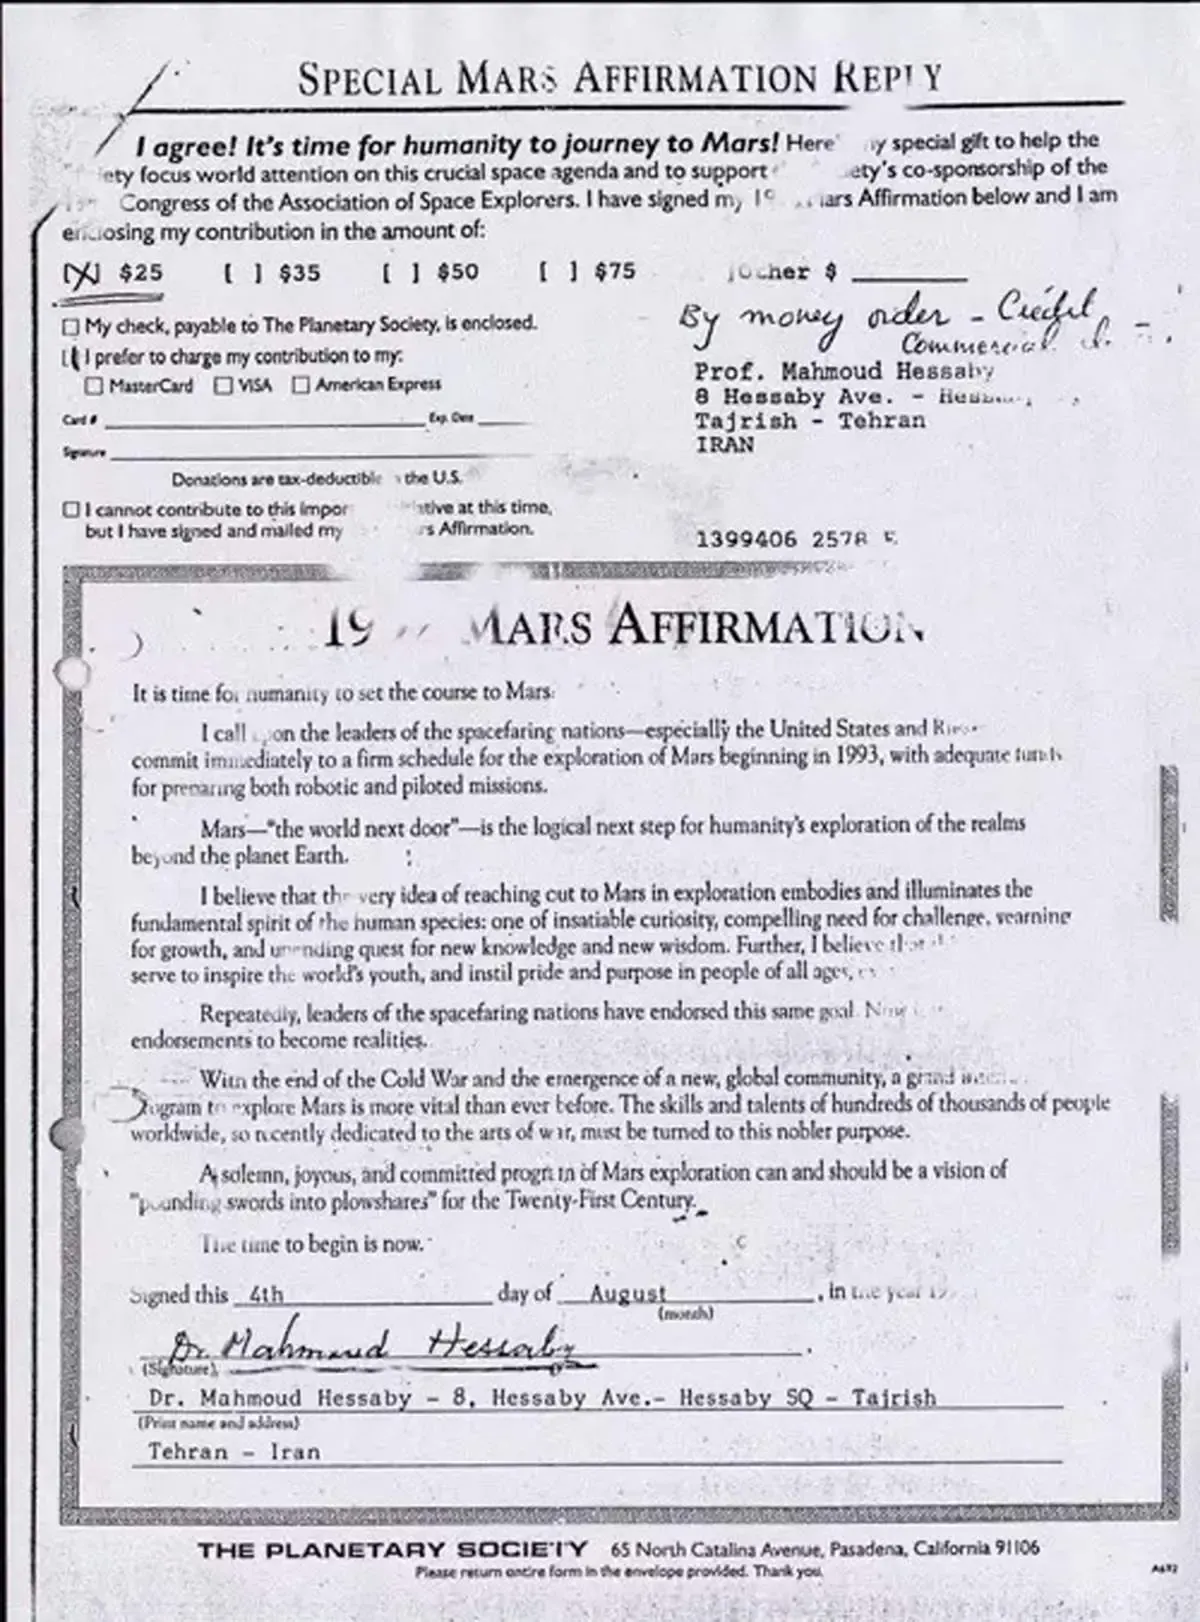 SPECIAL MARS AFFIRMATION REPLY
I agree! It's time for humanity to journey to Mars! Here' my special gift to help the
ety focus world attention on this crucial space agenda and to support ety's co-sponsorship of the
Congress of the Association of Space Explorers. I have signed my 19 Mars Affirmation below and I am
enclosing my contribution in the amount of:
[X] $25 [ ] $35 [ ] $50 [ ] $75 ] Other $
By money order - Credit
Commercial
☐ My check, payable to The Planetary Society, is enclosed.
I prefer to charge my contribution to my:
☐ MasterCard ☐ VISA ☐ American Express
Card # Exp. Date
Signature
Prof. Mahmoud Hessaby
8 Hessaby Ave. -
Tajrish - Tehran
IRAN
Donations are tax-deductible the U.S.
☐ I cannot contribute to this impor ative at this time,
but I have signed and mailed my rs Affirmation.
1399406 2578
19 MARS AFFIRMATION
It is time for humanity to set the course to Mars.
I call upon the leaders of the spacefaring nations—especially the United States and
commit immediately to a firm schedule for the exploration of Mars beginning in 1993, with adequate funds
for preparing both robotic and piloted missions.
Mars—"the world next door"—is the logical next step for humanity's exploration of the realms
beyond the planet Earth.
I believe that the very idea of reaching out to Mars in exploration embodies and illuminates the
fundamental spirit of the human species: one of insatiable curiosity, compelling need for challenge, yearning
for growth, and unending quest for new knowledge and new wisdom. Further, I believe that
serve to inspire the world's youth, and instil pride and purpose in people of all ages,
Repeatedly, leaders of the spacefaring nations have endorsed this same goal. Now
endorsements to become realities.
With the end of the Cold War and the emergence of a new, global community, a grand
program to explore Mars is more vital than ever before. The skills and talents of hundreds of thousands of people
worldwide, so recently dedicated to the arts of war, must be turned to this nobler purpose.
A solemn, joyous, and committed program of Mars exploration can and should be a vision of
"pounding swords into plowshares" for the Twenty-First Century.
The time to begin is now.
Signed this 4th day of August, in the year 19
(month)
Dr. Mahmoud Hessaby
(Signature)
Dr. Mahmoud Hessaby - 8, Hessaby Ave.- Hessaby SQ - Tajrish
(Print name and address)
Tehran - Iran
THE PLANETARY SOCIETY 65 North Catalina Avenue, Pasadena, California 91106
Please return entire form in the envelope provided. Thank you.